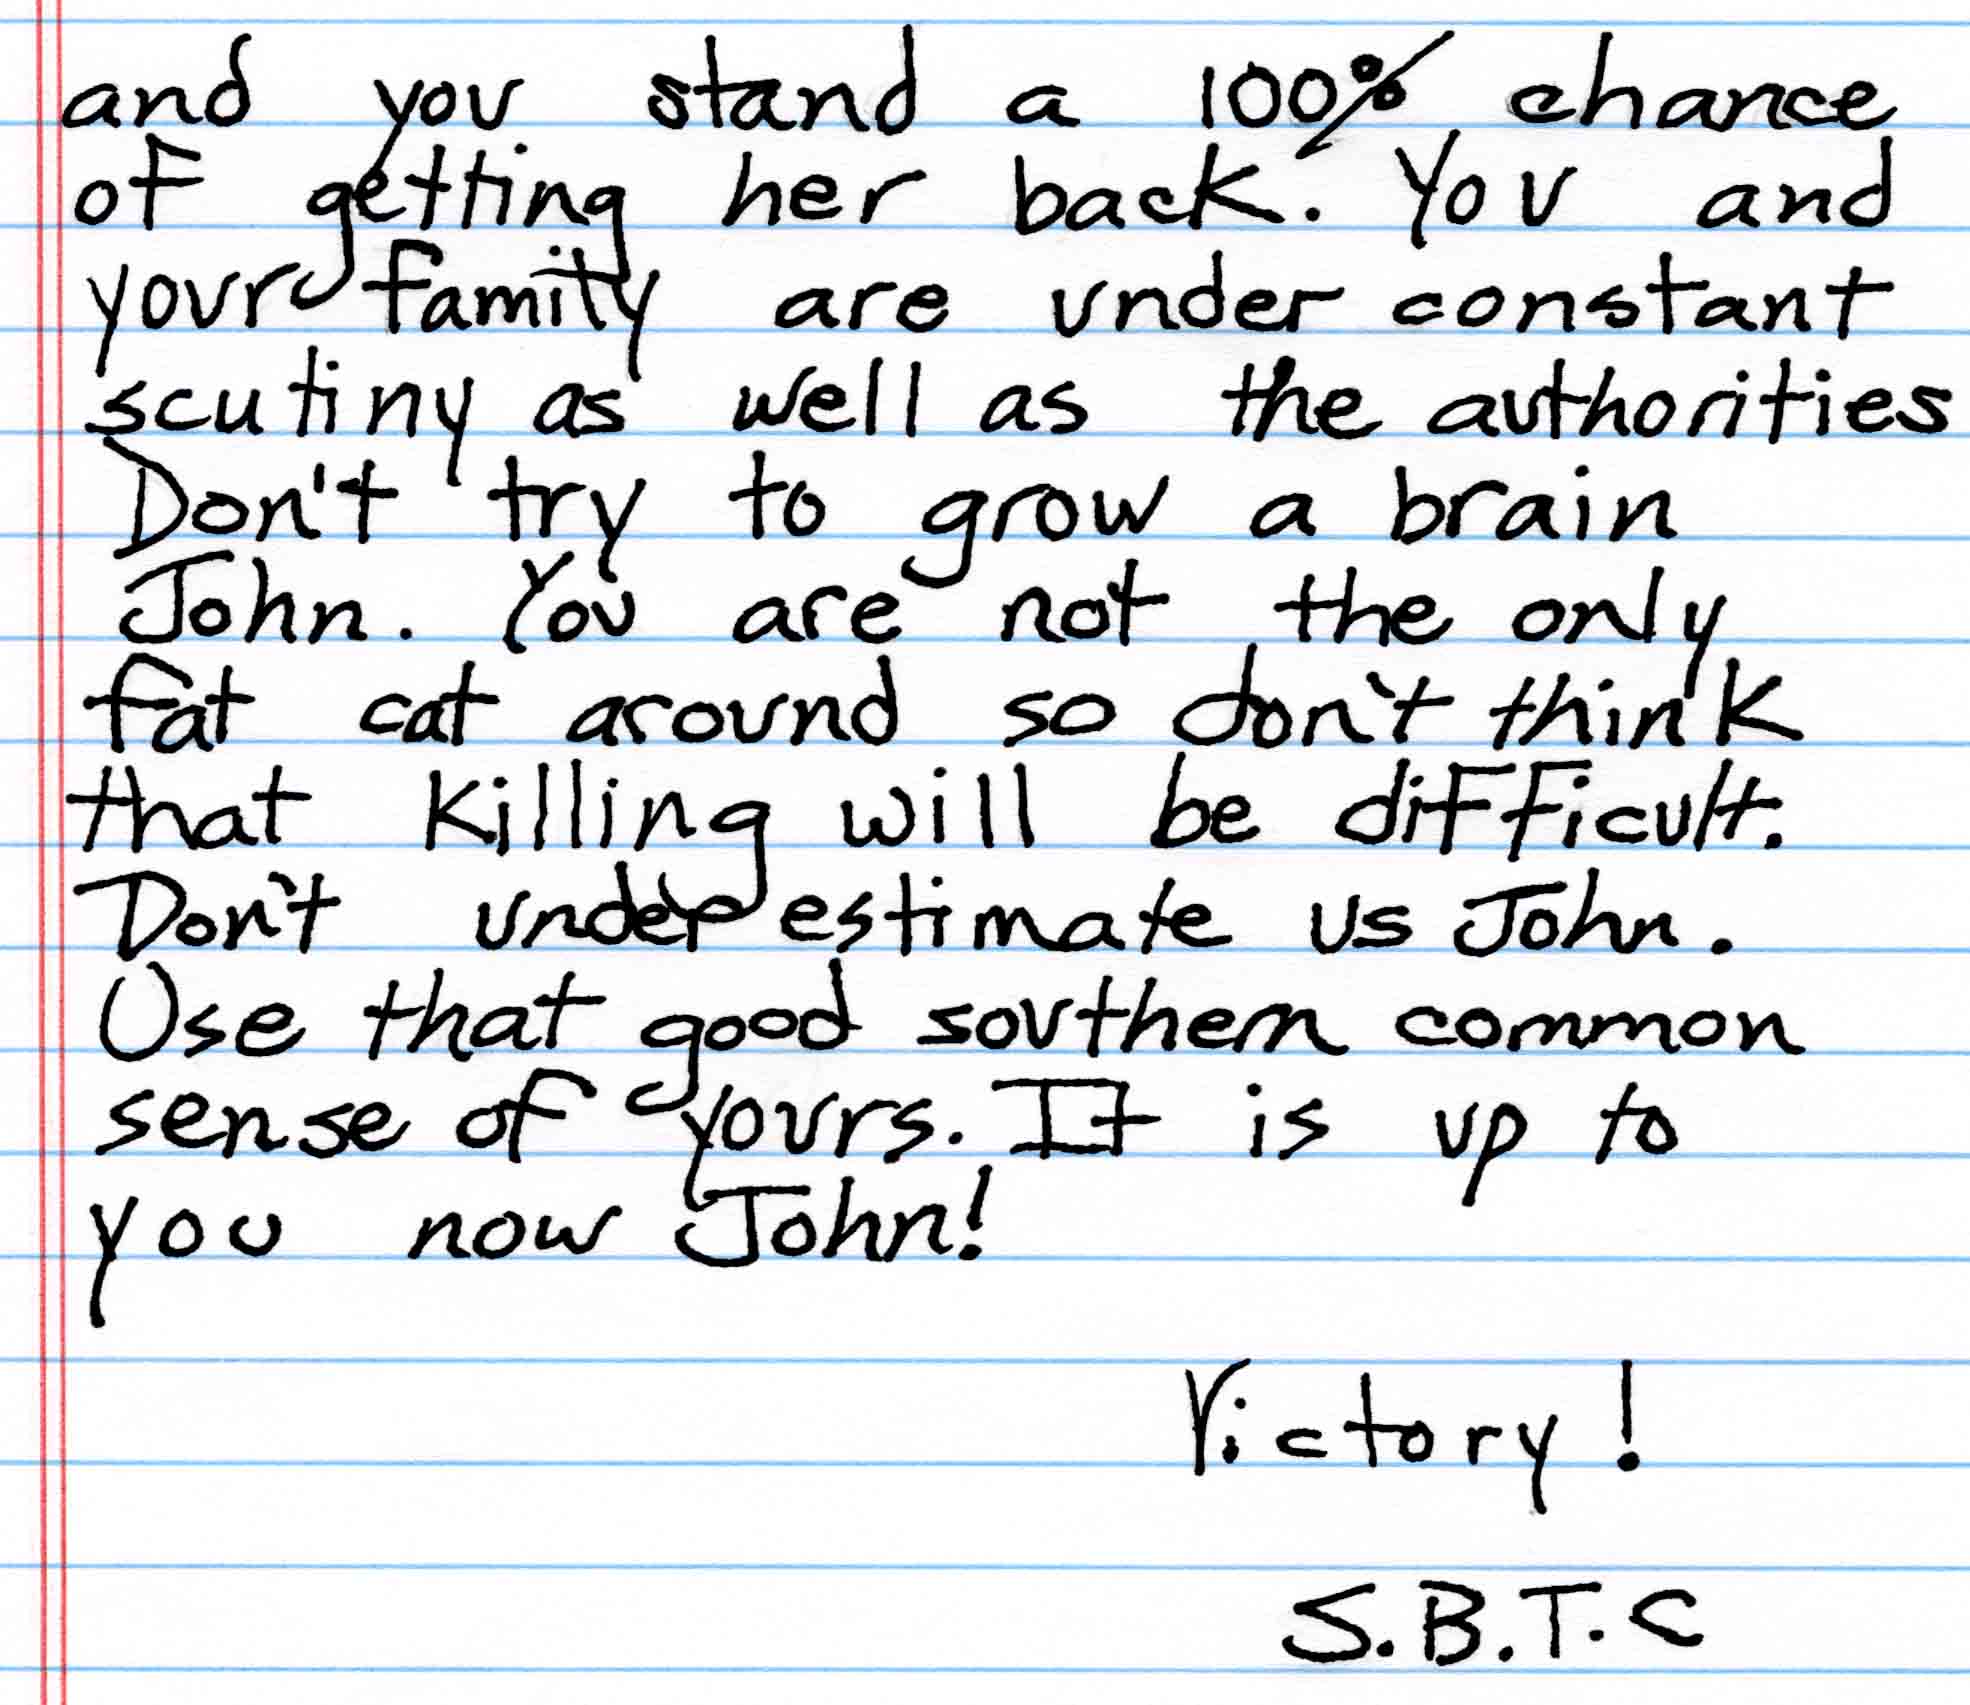 and you stand a 100% chance
of getting her back. You and
your family are under constant
scutiny as well as the authorities
Don't try to grow a brain
John. You are not the only
fat cat around so don't think
that killing will be difficult.
Don't underestimate us John.
Use that good southern common
sense of yours. It is up to
you now John!
Victory!
S.B.T.C